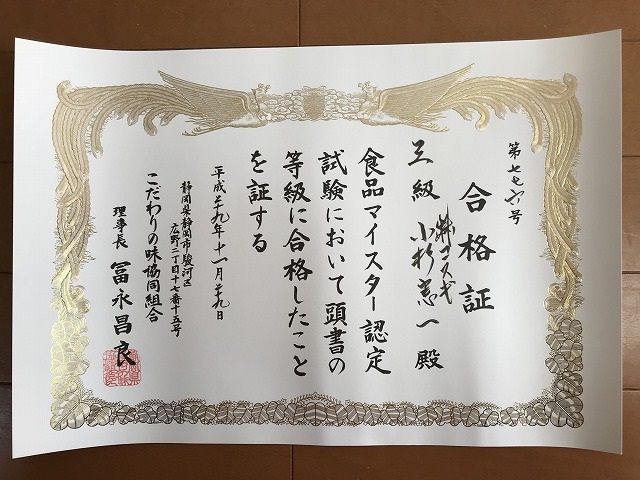 第七七六号
合格証
三級
㈱コスギ
小杉憲一殿
食品マイスター認定
試験において頭書の
等級に合格したこと
を証する
平成二十九年十一月二十九日
静岡県静岡市駿河区
広野二丁目十七番十五号
こだわりの味協同組合
理事長 冨永昌良